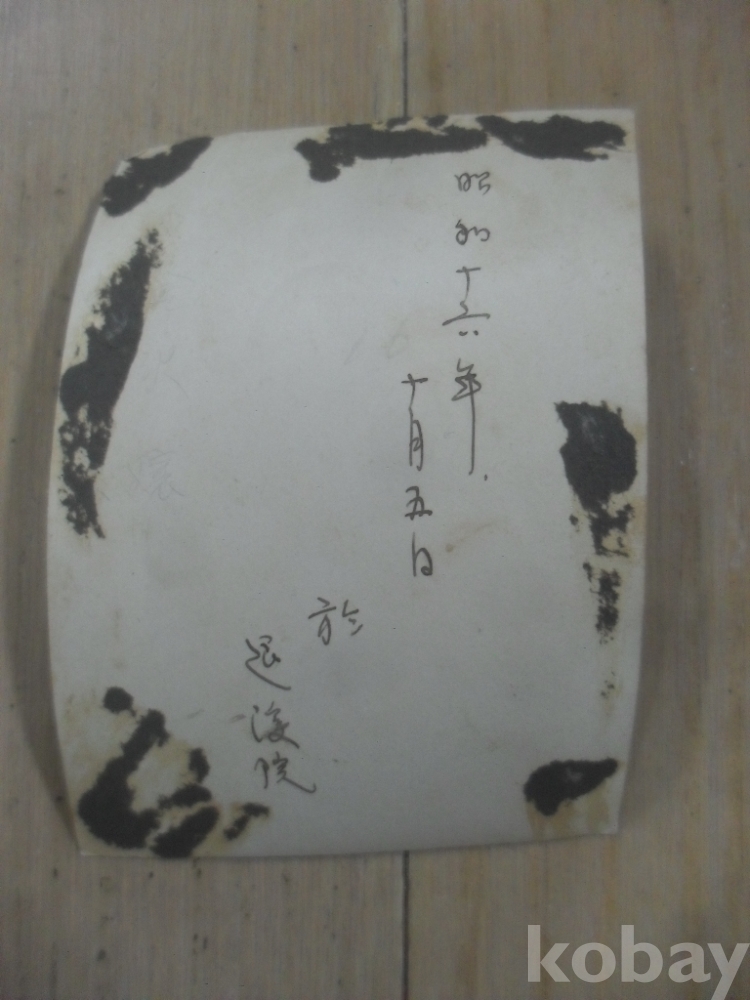 昭和十六年
十月五日
於
退
院
kobay